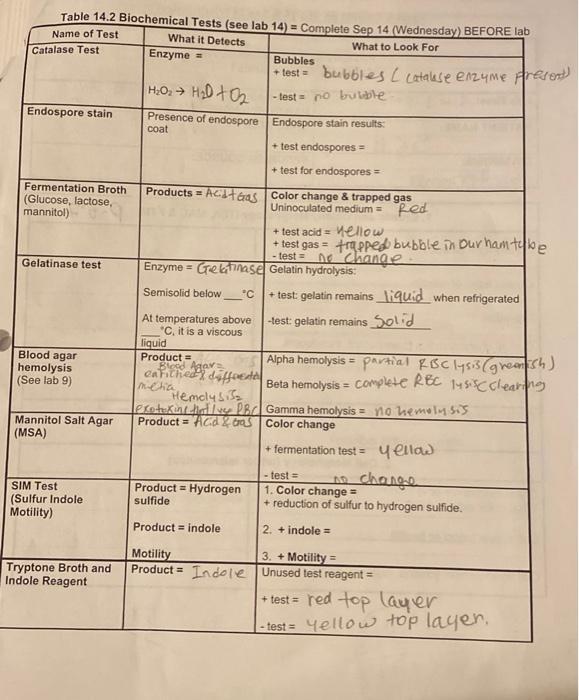 Table 14.2 Biochemical Tests (see lab 14) = Complete Sep 14 (Wednesday) BEFORE lab
Name of Test
What it Detects
What to Look For
Catalase Test
Enzyme =
H₂O₂ → H₂O + O₂
Bubbles
+ test = bubbles ( catalase enzyme present)
- test = no bubble
Endospore stain
Presence of endospore
coat
Endospore stain results:
+ test endospores =
+ test for endospores =
Fermentation Broth
(Glucose, lactose,
mannitol)
Products = Acid + Gas
Color change & trapped gas
Uninoculated medium = Red
+ test acid = Yellow
+ test gas = trapped bubble in Durham tube
- test = no change.
Gelatinase test
Enzyme = Gelatinase
Semisolid below ___°C
At temperatures above
___°C, it is a viscous
liquid
Gelatin hydrolysis:
+ test: gelatin remains liquid when refrigerated
-test: gelatin remains Solid
Blood agar
hemolysis
(See lab 9)
Product =
Blood Agar =
enriched & differential
media
Hemolysis =
exotoxins that lyse RBC
Alpha hemolysis = partial RBC lysis (greenish)
Beta hemolysis = complete RBC lysis (clearing
Gamma hemolysis = no hemolysis
Mannitol Salt Agar
(MSA)
Product = Acid & Gas
Color change
+ fermentation test = yellow
- test = no change
SIM Test
(Sulfur Indole
Motility)
Product = Hydrogen
sulfide
Product = indole
Motility
1. Color change =
+ reduction of sulfur to hydrogen sulfide.
2. + indole =
3. + Motility =
Tryptone Broth and
Indole Reagent
Product = Indole
Unused test reagent =
+ test = red top layer
- test = yellow top layer.